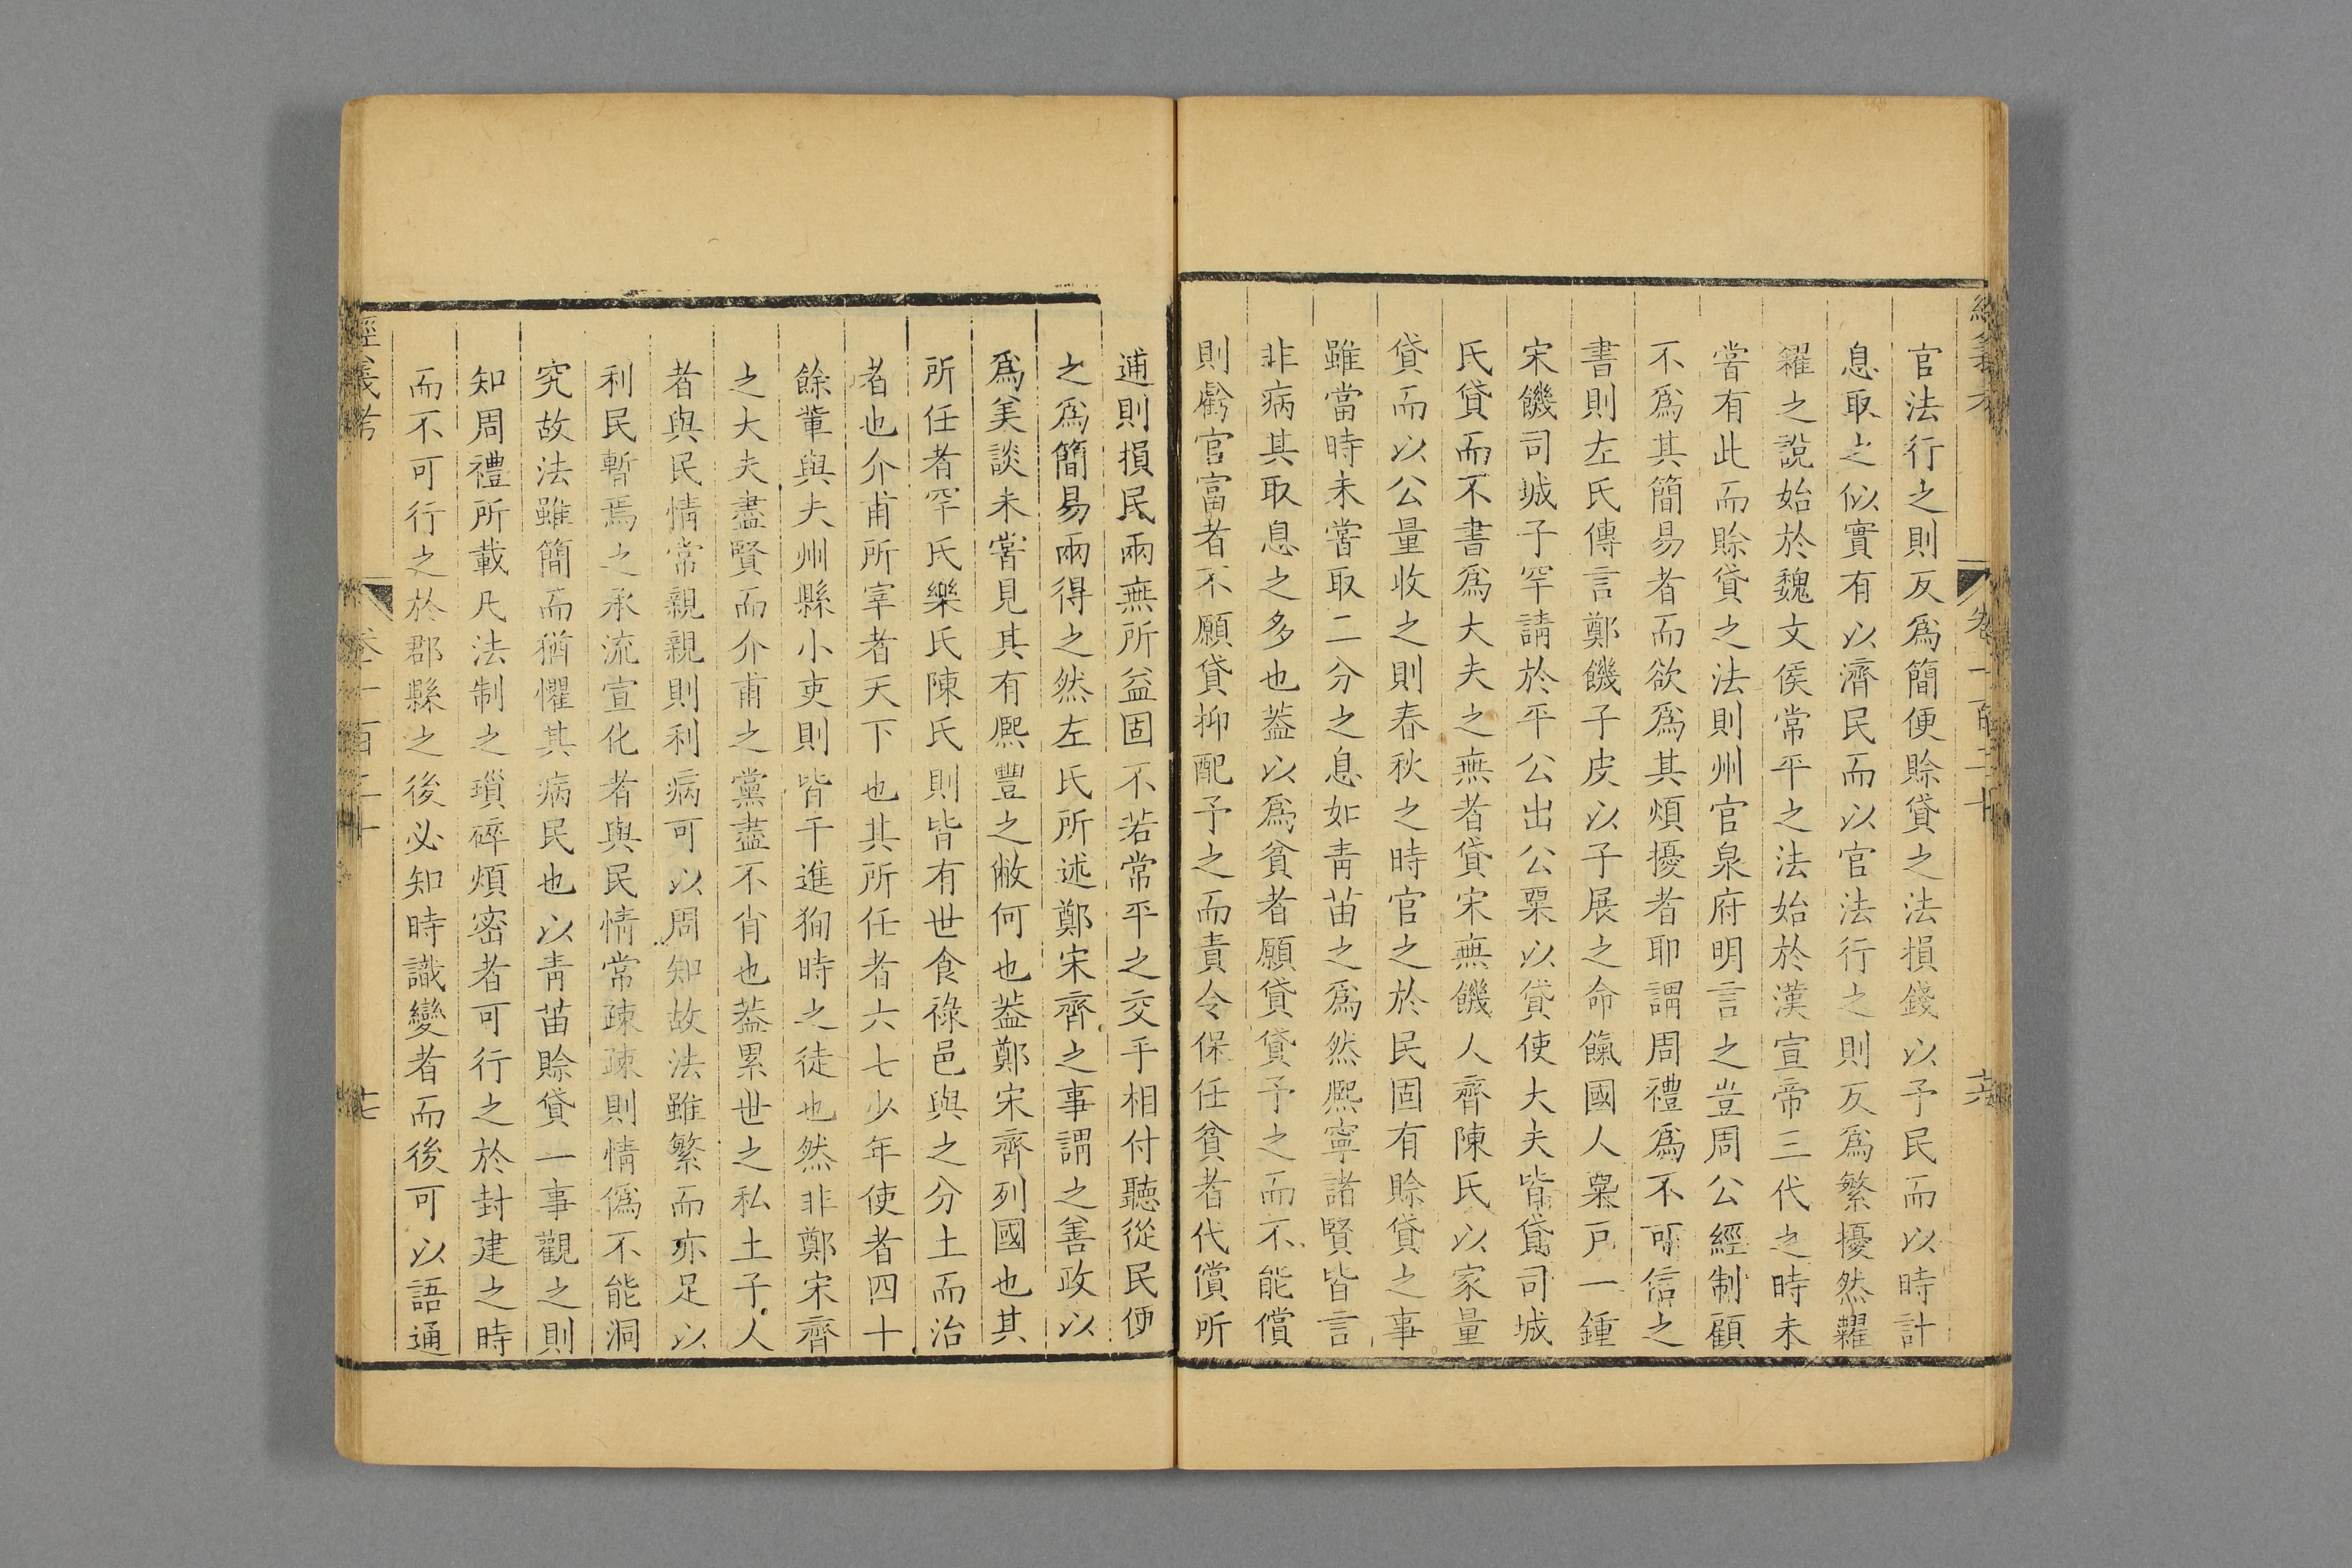 官法行之則反爲簡便賖貸之法損錢以予民而以時計
息取之似實有以濟民而以官法行之則反爲繁擾然糶
糴之說始於魏文侯常平之法始於漢宣帝三代之時未
嘗有此而賖貸之法則州官泉府明言之豈周公經制顧
不爲其簡易者而欲爲其煩擾者耶謂周禮爲不可信之
書則左氏傳言鄭饑子皮以子展之命餼國人粟戸一鍾
宋饑司城子罕請於平公出公粟以貸使大夫皆貸司城
氏貸而不書爲大夫之無者貸宋無饑人齊陳氏以家量
貸而以公量收之則春秋之時官之於民固有賖貸之事
雖當時未嘗取二分之息如青苗之爲然熈寧諸賢皆言
非病其取息之多也葢以爲貧者願貸貸予之而不能償
則虧官富者不願貸抑配予之而責令保任貧者代償所
逋則損民兩無所益固不若常平之交手相付聽從民便
之爲簡易兩得之然左氏所述鄭宋齊之事謂之善政以
爲美談未嘗見其有熈豐之敝何也葢鄭宋齊列國也其
所任者罕氏樂氏陳氏則皆有世食祿邑與之分土而治
者也介甫所宰者天下也其所任者六七少年使者四十
餘輩與夫州縣小吏則皆干進狥時之徒也然非鄭宋齊
之大夫盡賢而介甫之黨盡不肖也葢累世之私土子人
者與民情常親親則利病可以周知故法雖繁而亦足以
利民暫焉之承流宣化者與民情常疎疎則情僞不能洞
究故法雖簡而猶懼其病民也以青苗賖貸一事觀之則
知周禮所載凡法制之瑣碎煩密者可行之於封建之時
而不可行之於郡縣之後必知時識變者而後可以語通
經義考
卷一百二十
七